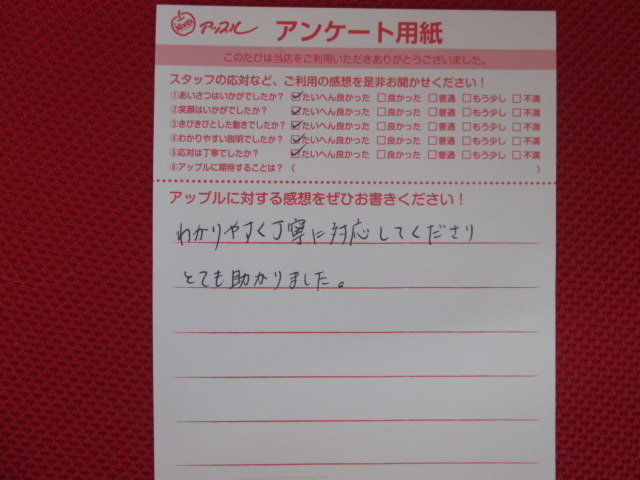 アップル アンケート用紙
このたびは当店をご利用いただきありがとうございました。
スタッフの応対など、ご利用の感想を是非お聞かせください！
①あいさつはいかがでしたか？ ☑たいへん良かった □良かった □普通 □もう少し □不満
②笑顔はいかがでしたか？ ☑たいへん良かった □良かった □普通 □もう少し □不満
③きびきびとした動きでしたか？ ☑たいへん良かった □良かった □普通 □もう少し □不満
④わかりやすい説明でしたか？ ☑たいへん良かった □良かった □普通 □もう少し □不満
⑤応対は丁寧でしたか？ ☑たいへん良かった □良かった □普通 □もう少し □不満
⑥アップルに期待することは？（ ）
アップルに対する感想をぜひお書きください！
わかりやすく丁寧に対応してくださり
とても助かりました。